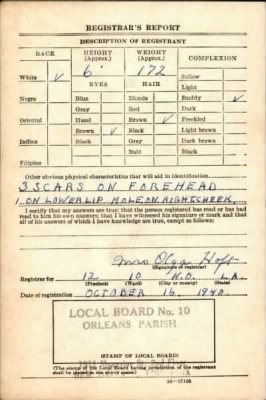 REGISTRAR'S REPORT
DESCRIPTION OF REGISTRANT
RACE HEIGHT (Approx.) WEIGHT (Approx.) COMPLEXION
White ✓ 6' 172 Sallow
Light
EYES HAIR
Negro Blue Blonde Ruddy ✓
Gray Red Dark
Oriental Hazel Brown ✓ Freckled
Brown ✓ Black Light brown
Indian Black Gray Dark brown
Bald Black
Filipino
Other obvious physical characteristics that will aid in identification
3 SCARS ON FOREHEAD
1 ON LOWER LIP MOLE ON RIGHT CHEEK,
I certify that my answers are true; that the person registered has read or has had
read to him his own answers; that I have witnessed his signature or mark and that
all of his answers of which I have knowledge are true, except as follows:
Mrs Olga
(Signature of registrar)
Registrar for 12 10 N.O. LA.
(Precinct) (Ward) (City or county) (State)
Date of registration OCTOBER 16, 1940.
LOCAL BOARD No. 10
ORLEANS PARISH
(STAMP OF LOCAL BOARD)
(The stamp of the Local Board having jurisdiction of the registrant
shall be placed in the above space.)